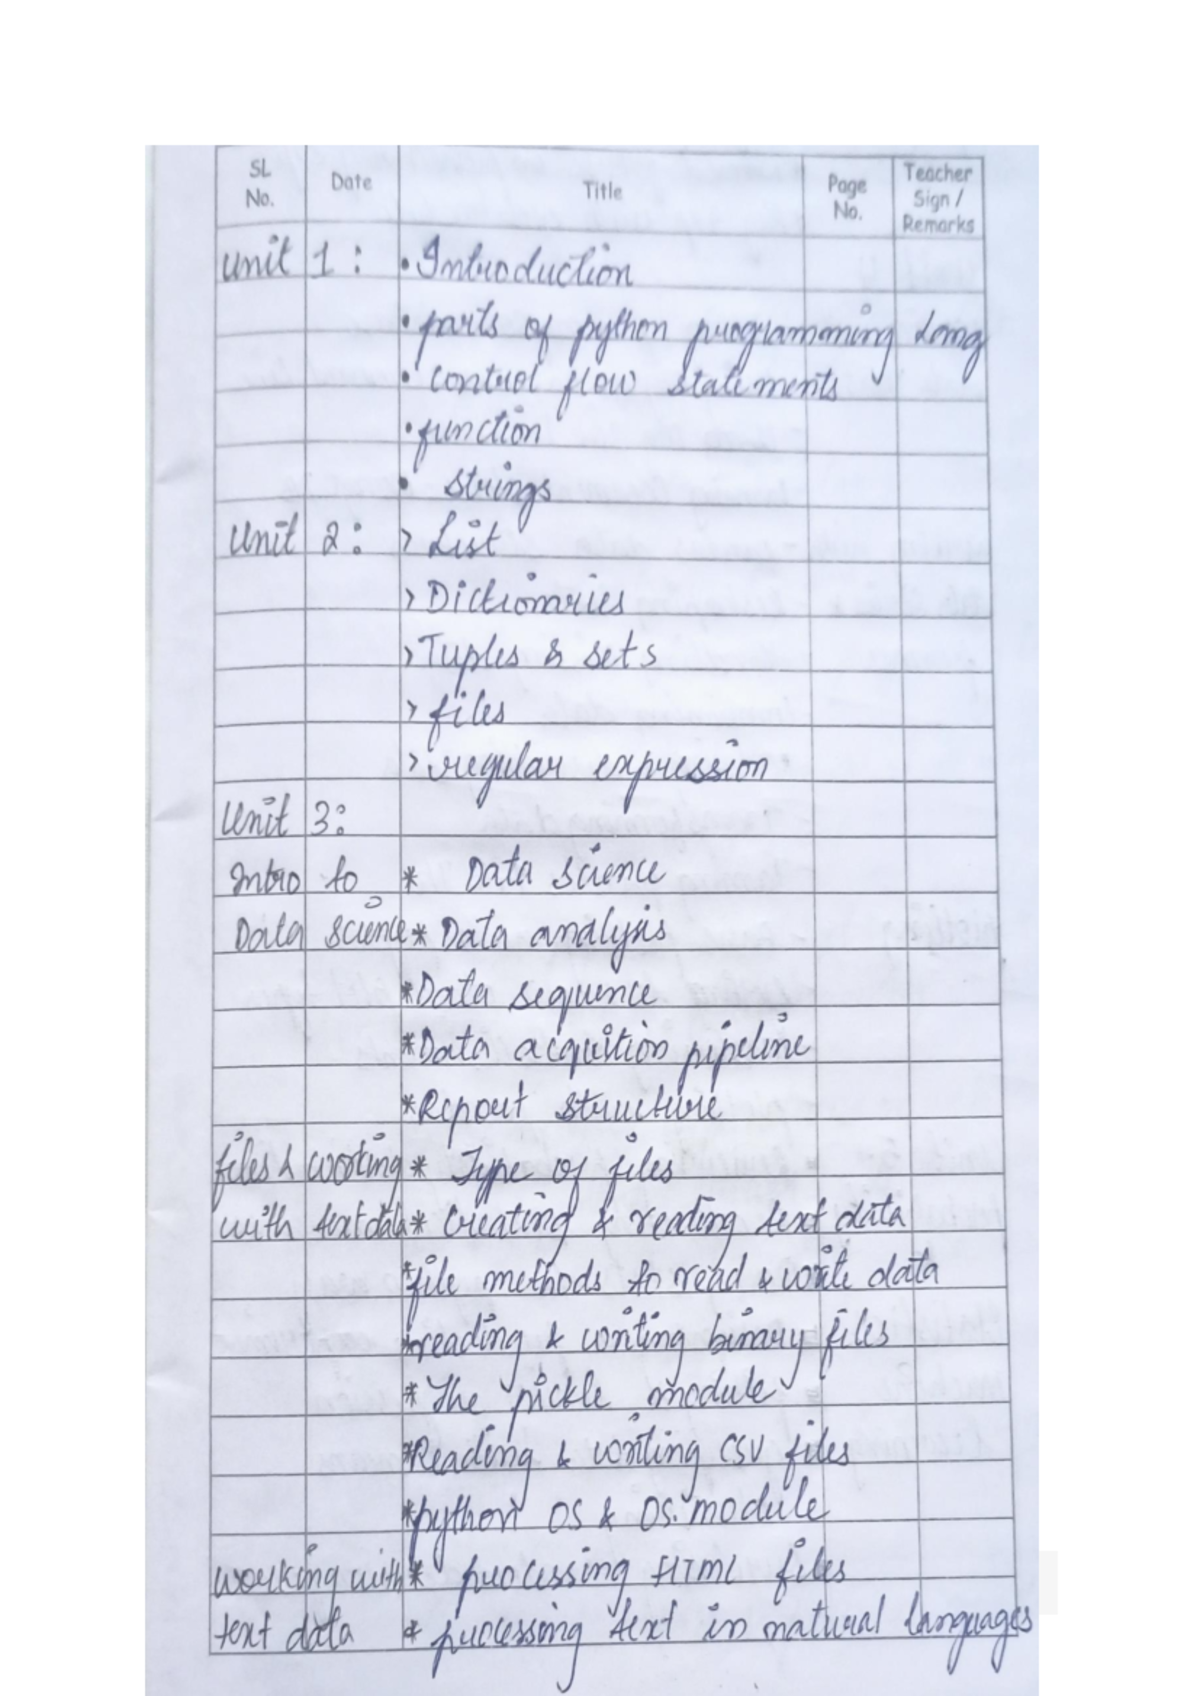 SL No. Date Title Page No. Teacher Sign / Remarks
Unit 1 : • Introduction
• parts of python programming Lang
• control flow statements
• function
• strings
Unit 2 : > List
> Dictionaries
> Tuples & sets
> files
> regular expression
Unit 3 :
Intro to * Data science
Data science * Data analysis
* Data sequence
* Data acquition pipeline
* Report structure
files & working * Type of files
with text data * Creating & reading text data
* file methods to read & write data
* reading & writing binary files
* The pickle module
* Reading & writing CSV files
* python OS & OS. module
working with * processing HTML files
text data * processing text in natural languages